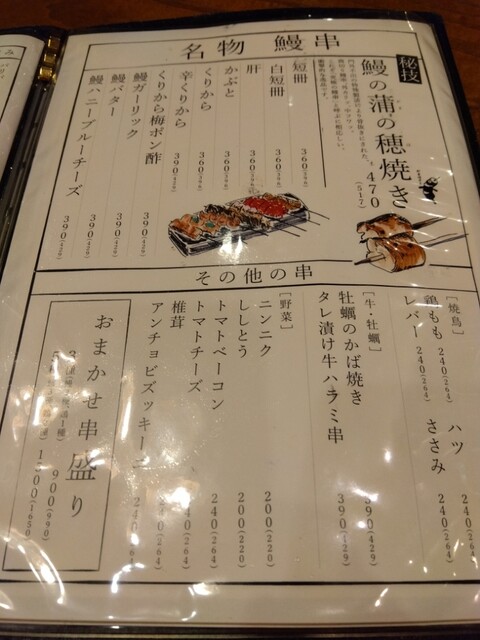 名物 鰻串
秘技
鰻の蒲の穂焼き 470
(517)
短冊 360(396)
白短冊 360(396)
肝 360(396)
かぶと 360(396)
くりから 360(396)
辛くりから 390(429)
くりから梅ポン酢 390(429)
鰻ガーリック 390(429)
鰻バター 390(429)
鰻ハニーブルーチーズ 390(429)
その他の串
[焼鳥]
鶏もも 240(264)
レバー 240(264)
ハツ 240(264)
ささみ 240(264)
[牛・牡蠣]
牡蠣のかば焼き 390(429)
タレ漬け牛ハラミ串 390(429)
[野菜]
ニンニク 200(220)
ししとう 200(220)
トマトベーコン 240(264)
トマトチーズ 240(264)
椎茸 240(264)
アンチョビズッキーニ 240(264)
おまかせ串盛り
900(990)
1500(1650)